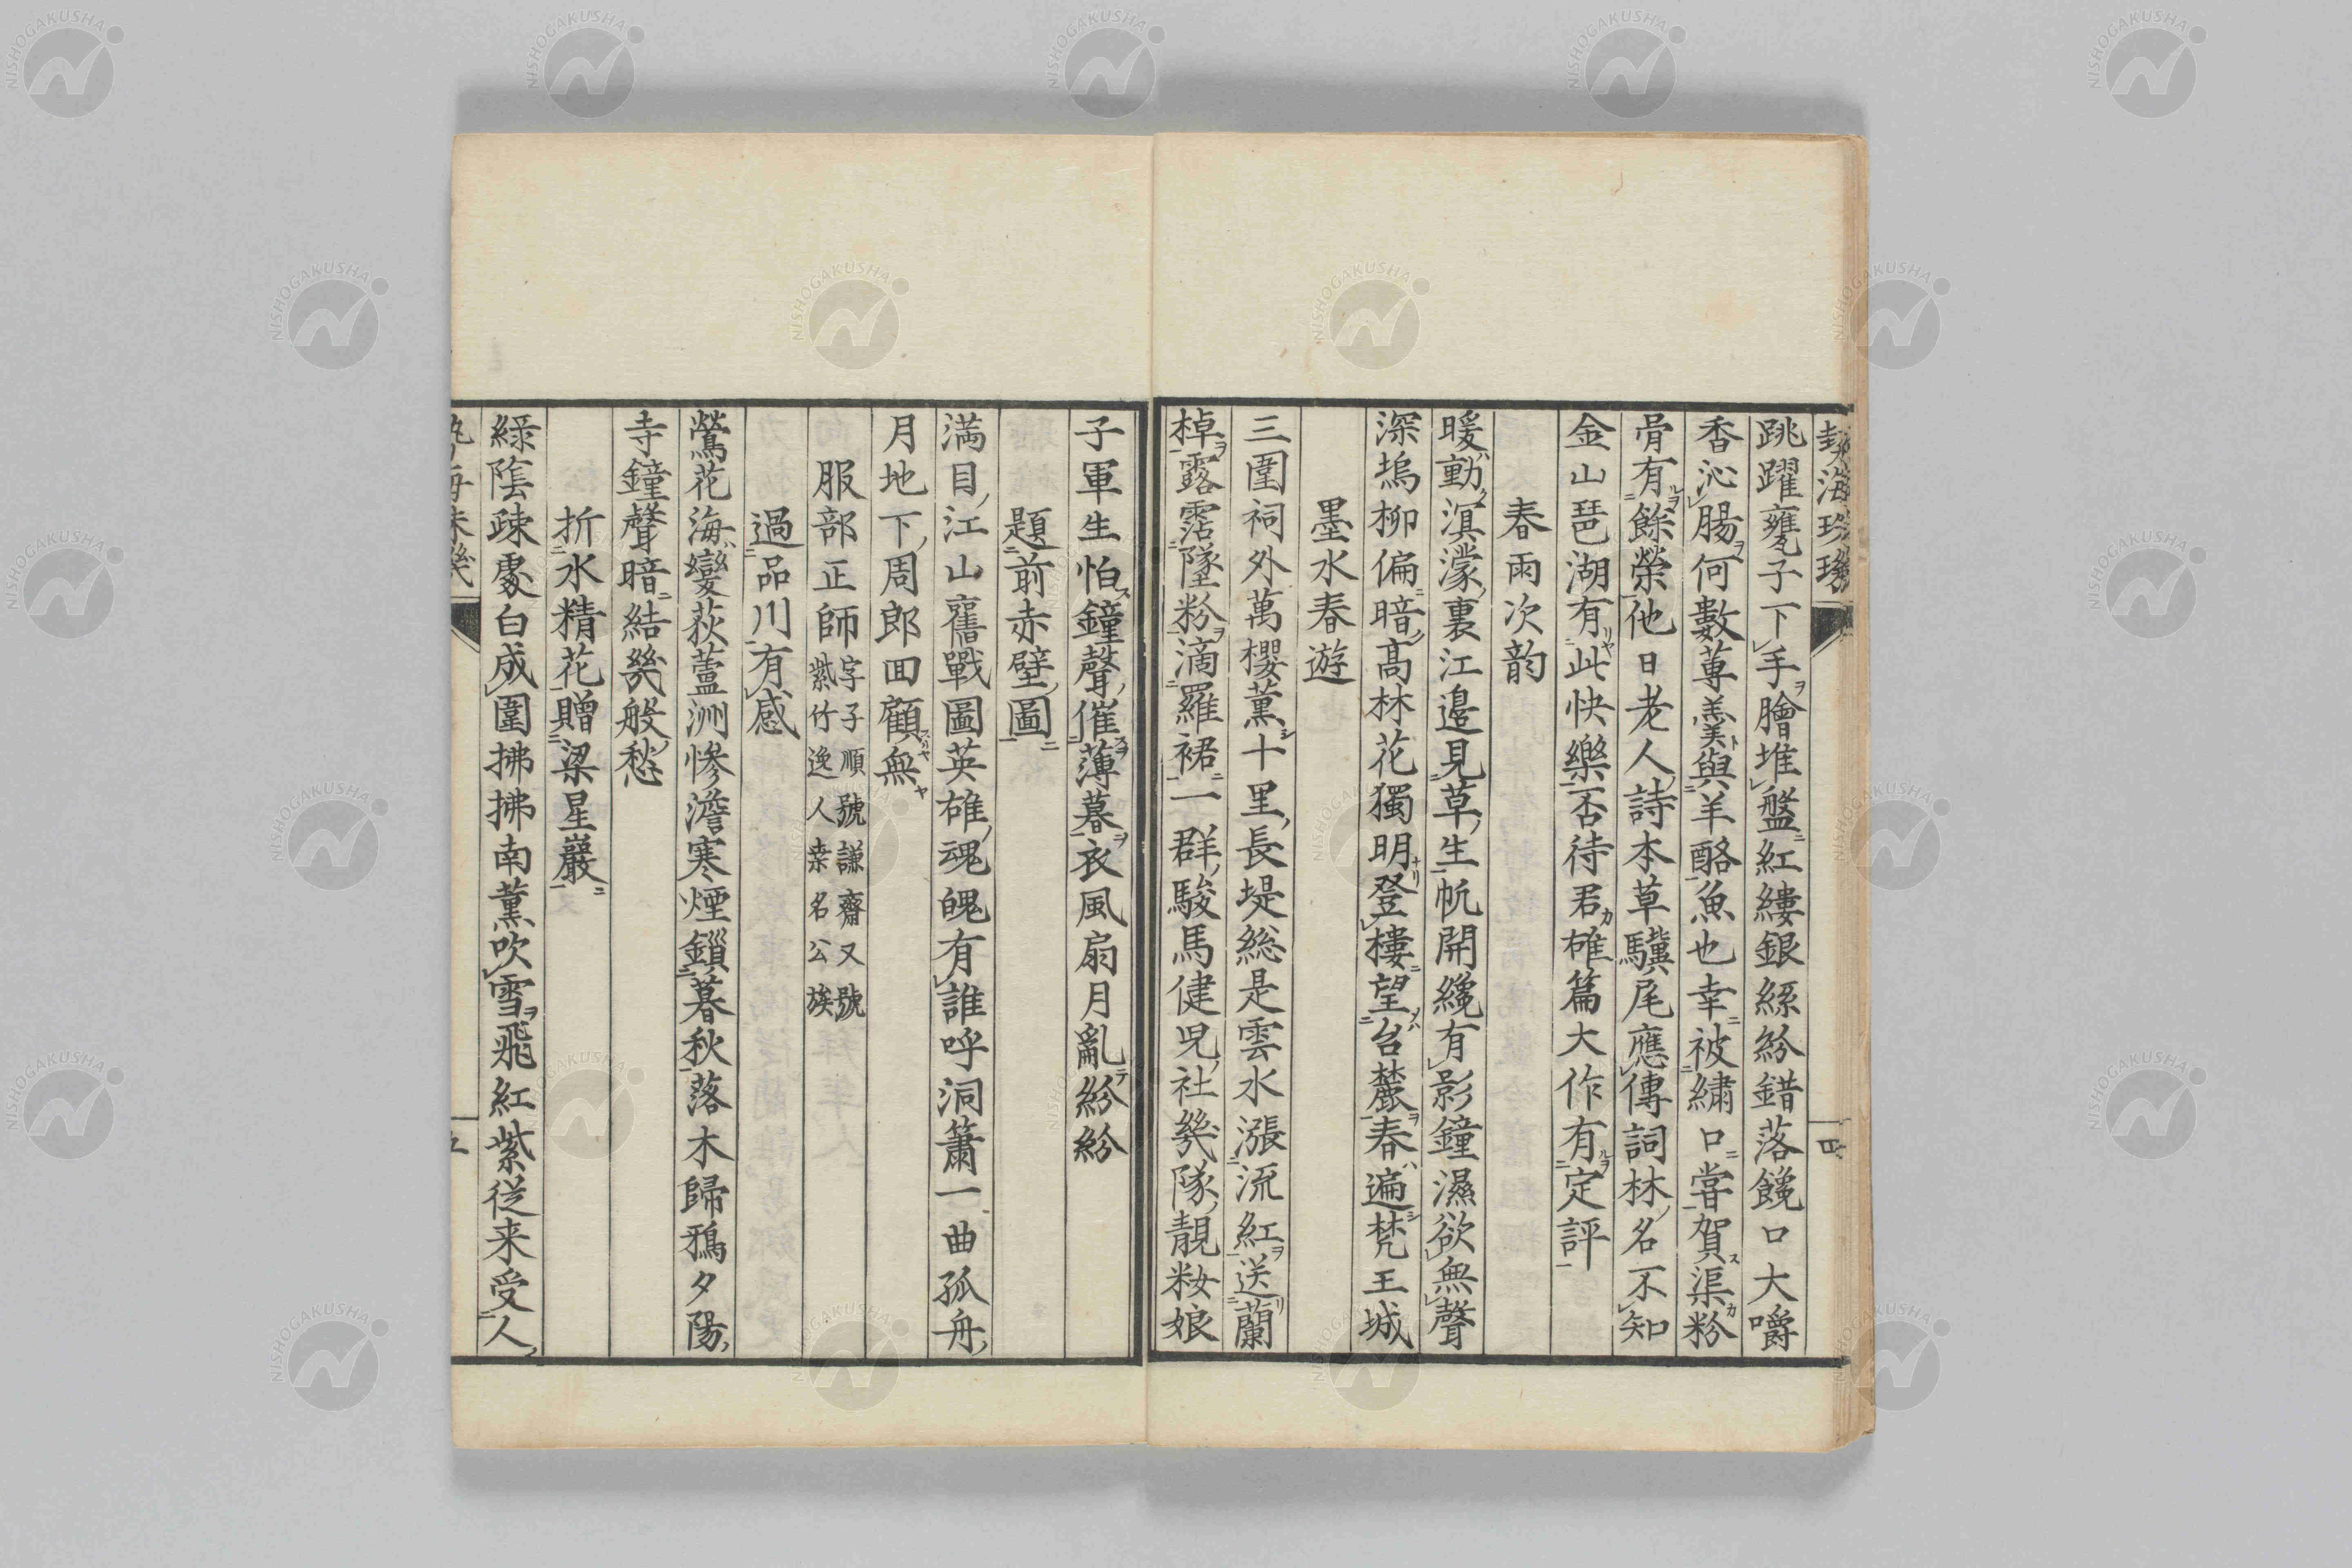 跳躍甕子下手膾堆盤紅縷銀絲紛錯落饞口大嚼
香沁腸何數蓴羹與羊酪魚也幸被繡口嘗賀渠粉
骨有餘榮他日老人詩本草驥尾應傳詞林名不知
金山琶湖有此快樂否待君雄篇大作有定評
春雨次韵
暖動溟濛裏江邉見草生帆開纔有影鐘濕欲無聲
深塢柳偏暗髙林花獨明登樓望台麓春遍梵王城
墨水春遊
三圍祠外萬櫻薫十里長堤総是雲水漲流紅送蘭
棹露霑墜粉滴羅裙一群駿馬健児社幾隊靚粧娘
子軍生怕鐘聲催薄暮衣風扇月亂紛紛
題前赤壁圖
満目江山舊戰圖英雄魂魄有誰呼洞簫一曲孤舟
月地下周郎囬顧無
服部正師 字子順號謙齋又號
紫竹逸人桒名公族
過品川有感
鶯花海變荻蘆洲惨澹寒煙鎖暮秋落木歸鴉夕陽
寺鐘聲暗結幾般愁
折水精花贈梁星巖
緑陰疎處白成圍拂拂南薫吹雪飛紅紫従来受人
四
五
NISHOGAKUSHA